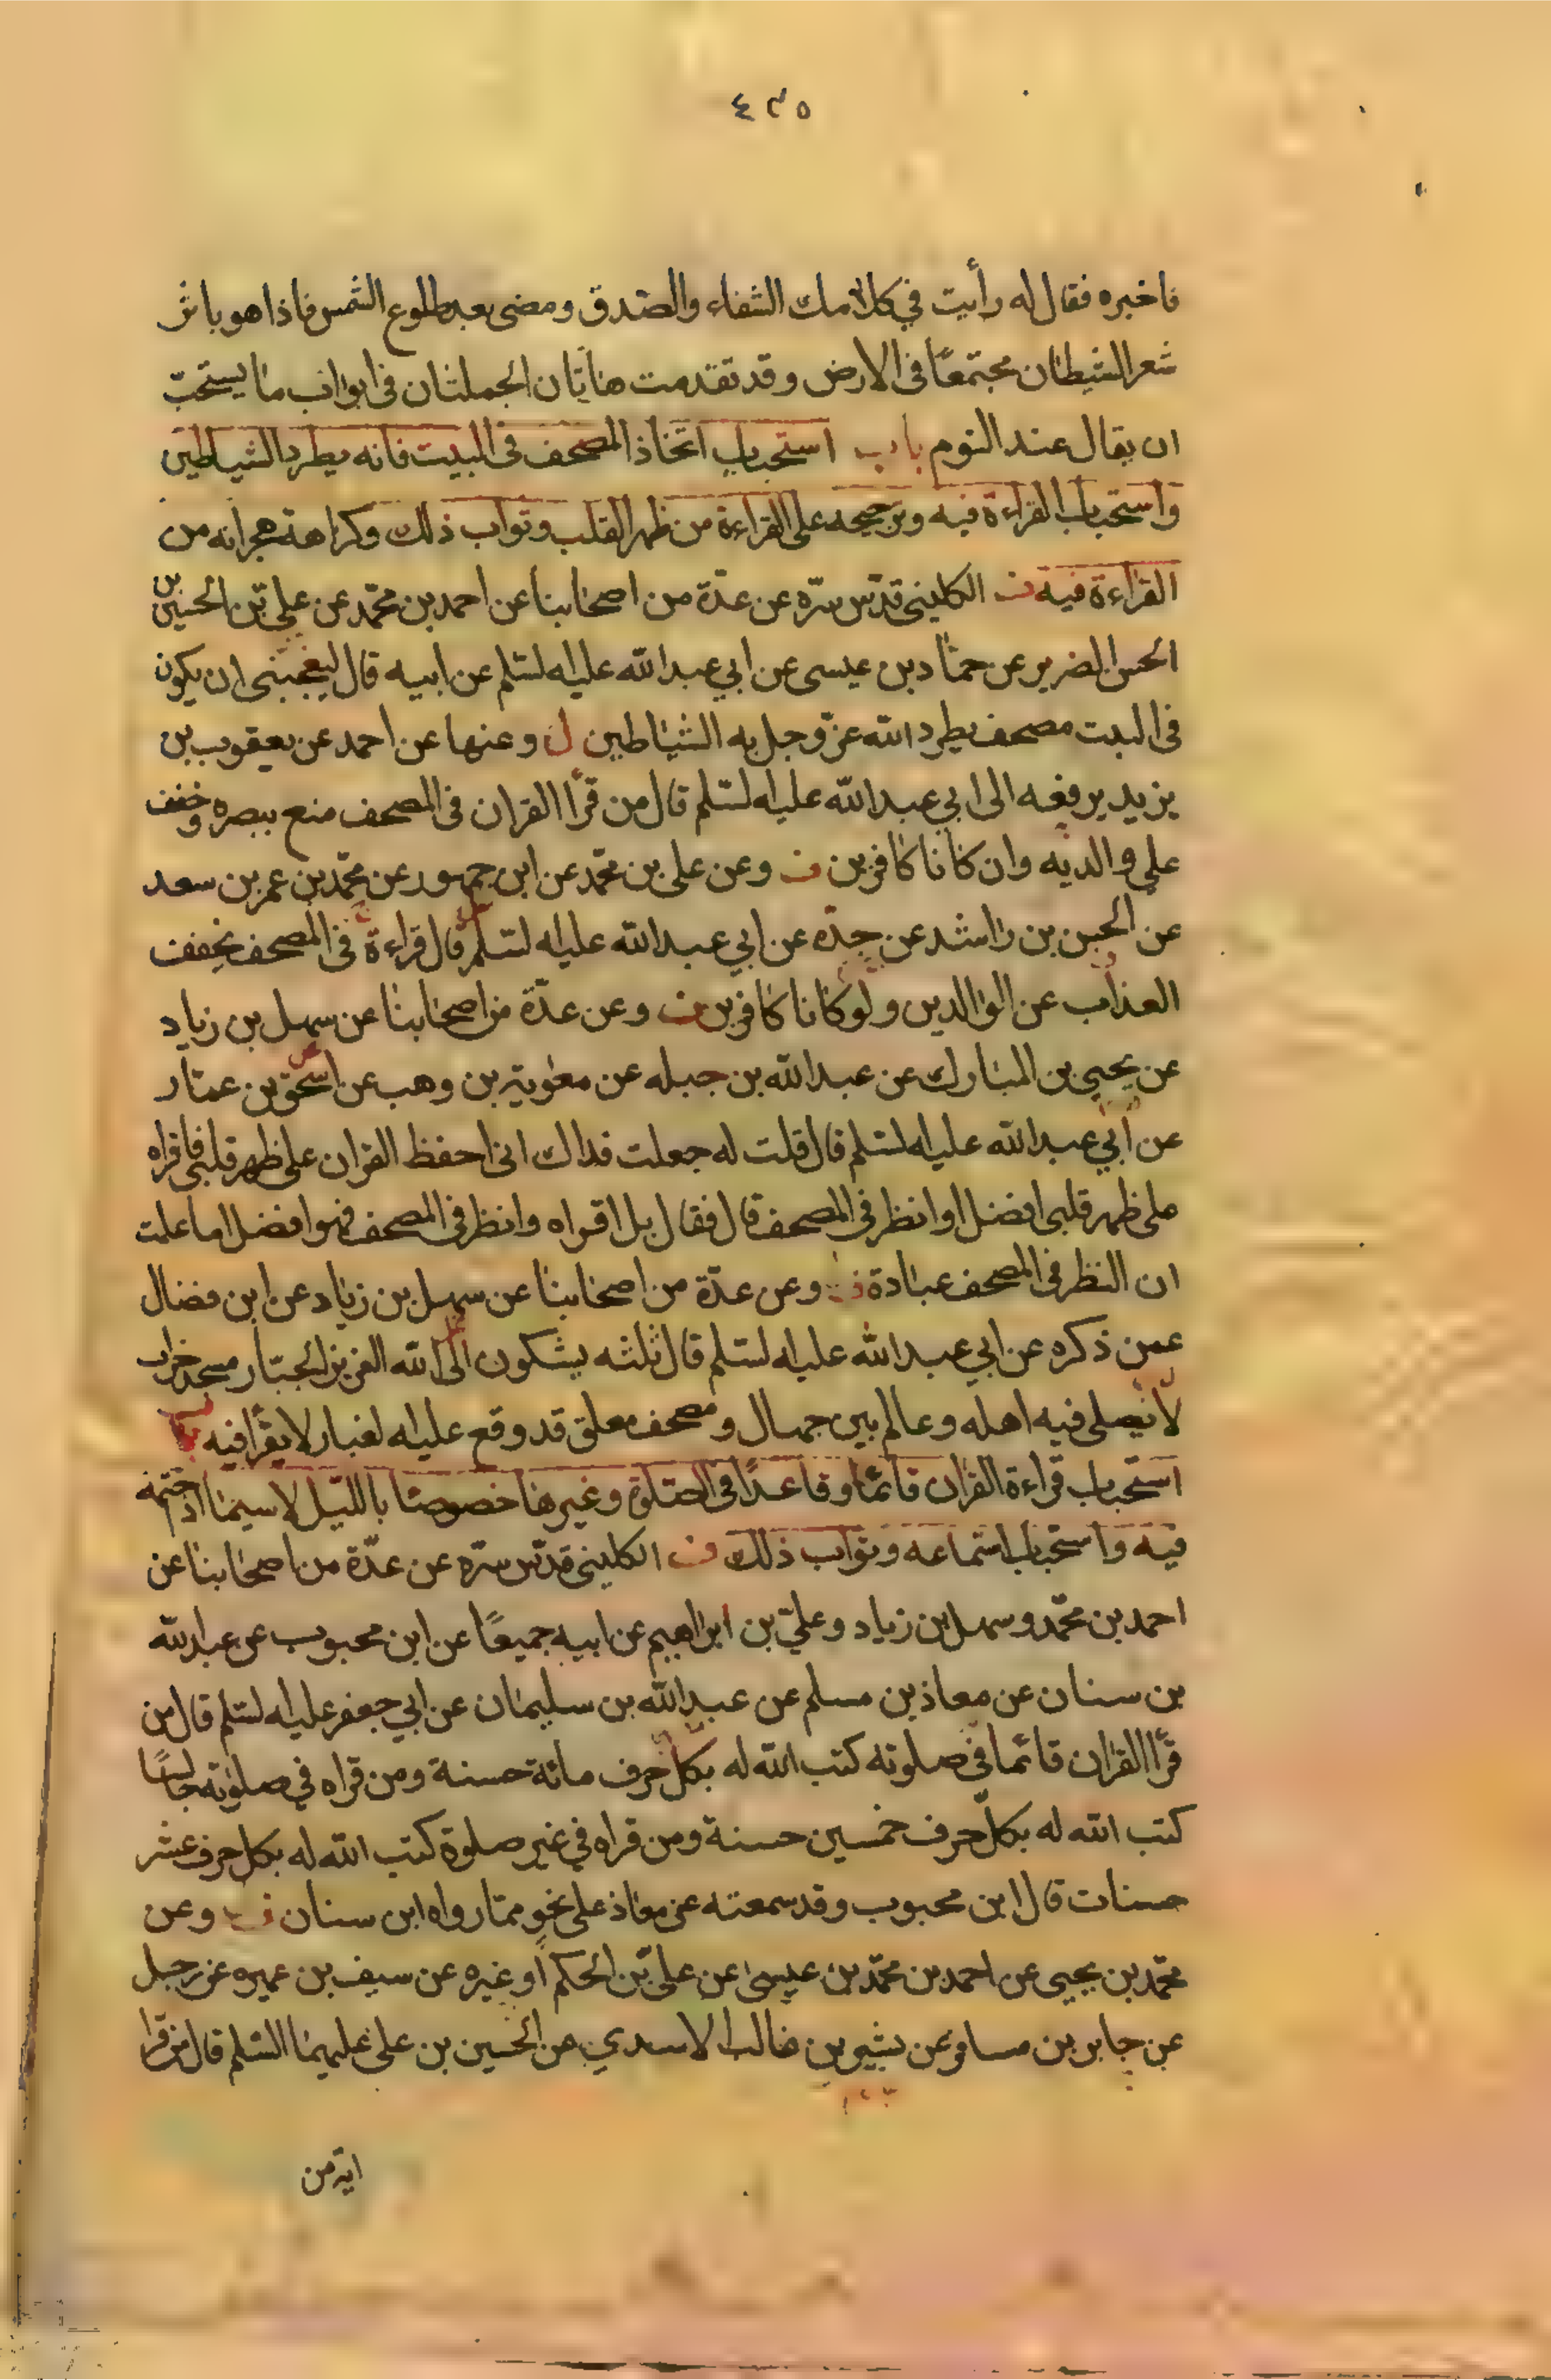 ٤٣٥
فاخبره فقال له رأيت في كلامك الشفاء والصّدق ومضى بعد طلوع الشمس فاذا هو باثر
شعر الشيطان مجتمعًا فى الارض وقد تقدمت هاتان الجملتان فى ابواب ما يستحبّ
ان يقال عند النوم باب استحباب اتخاذ المصحف فى البيت فانه يطرد الشياطين
واستحباب القراءة فيه وترجيحه على القراءة من ظهر القلب وثواب ذلك وكراهة هجرانه من
القراءة فيه ف الكلينى قدّس سرّه عن عدّة من اصحابنا عن احمد بن محمّد عن علي بن الحسين بن
الحسن الضرير عن حماد بن عيسى عن ابي عبد الله عليه السّلم عن ابيه قال ليعجبنى ان يكون
فى البيت مصحف يطرد الله عزّ وجل به الشياطين ل وعنها عن احمد عن يعقوب بن
يزيد يرفعه الى ابي عبد الله عليه السّلم قال من قرأ القران فى المصحف متع ببصره وخفف
على والديه وان كانا كافرين ف وعن على بن محمّد عن ابن جمهور عن محمّد بن عمر بن سعد
عن الحسن بن راشد عن جدّه عن ابي عبد الله عليه السّلم قال قراءة فى المصحف يخفف
العذاب عن الوالدين ولو كانا كافرين ف وعن عدّة من اصحابنا عن سهل بن زياد
عن يحيى بن المبارك عن عبد الله بن جبله عن معوية بن وهب عن اسحق بن عمار
عن أبي عبد الله عليه السّلم قال قلت له جعلت فداك انى احفظ القران على ظهر قلبى فاقراه
على ظهر قلبى افضل او انظر فى المصحف قال فقال بل اقراه وانظر فى المصحف فهو افضل اما علمت
ان النظر فى المصحف عبادة ف وعن عدّة من اصحابنا عن سهل بن زياد عن ابن فضال
عمن ذكره عن ابي عبد الله عليه السّلم قال ثلثه يشكون الى الله العزيز الجبار مسجد خراب
لا يصلى فيه اهله وعالم بين جهال ومصحف معلق قد وقع عليه الغبار لا يقرأ فيه باب
استحباب قراءة القران قائما وقاعدًا فى الصّلوة وغيرها خصوصًا بالليل لا سيما اذا ختمه
فيه واستحباب استماعه وثواب ذلك ف الكلينى قدّس سرّه عن عدّة من اصحابنا عن
احمد بن محمّد وسهل بن زياد وعليّ بن ابراهيم عن ابيه جميعًا عن ابن محبوب عن عبد الله
بن سنان عن معاذ بن مسلم عن عبد الله بن سليمان عن ابي جعفر عليه السّلم قال من
قرأ القران قائما فى صلوته كتب الله له بكل حرف مائة حسنة ومن قراه في صلوته جالسًا
كتب الله له بكلّ حرف خمسين حسنة ومن قراه في غير صلوة كتب الله له بكل حرف عشر
حسنات قال ابن محبوب وقد سمعته عن معاذ على نحو مما رواه ابن سنان ف وعن
محمّد بن يحيى عن احمد بن محمّد بن عيسى عن على بن الحكم أو غيره عن سيف بن عميره عن رجل
عن جابر بن مسافر عن بشير بن غالب الاسدي عن الحسين بن على عليهما السّلم قال من قرا
اية من